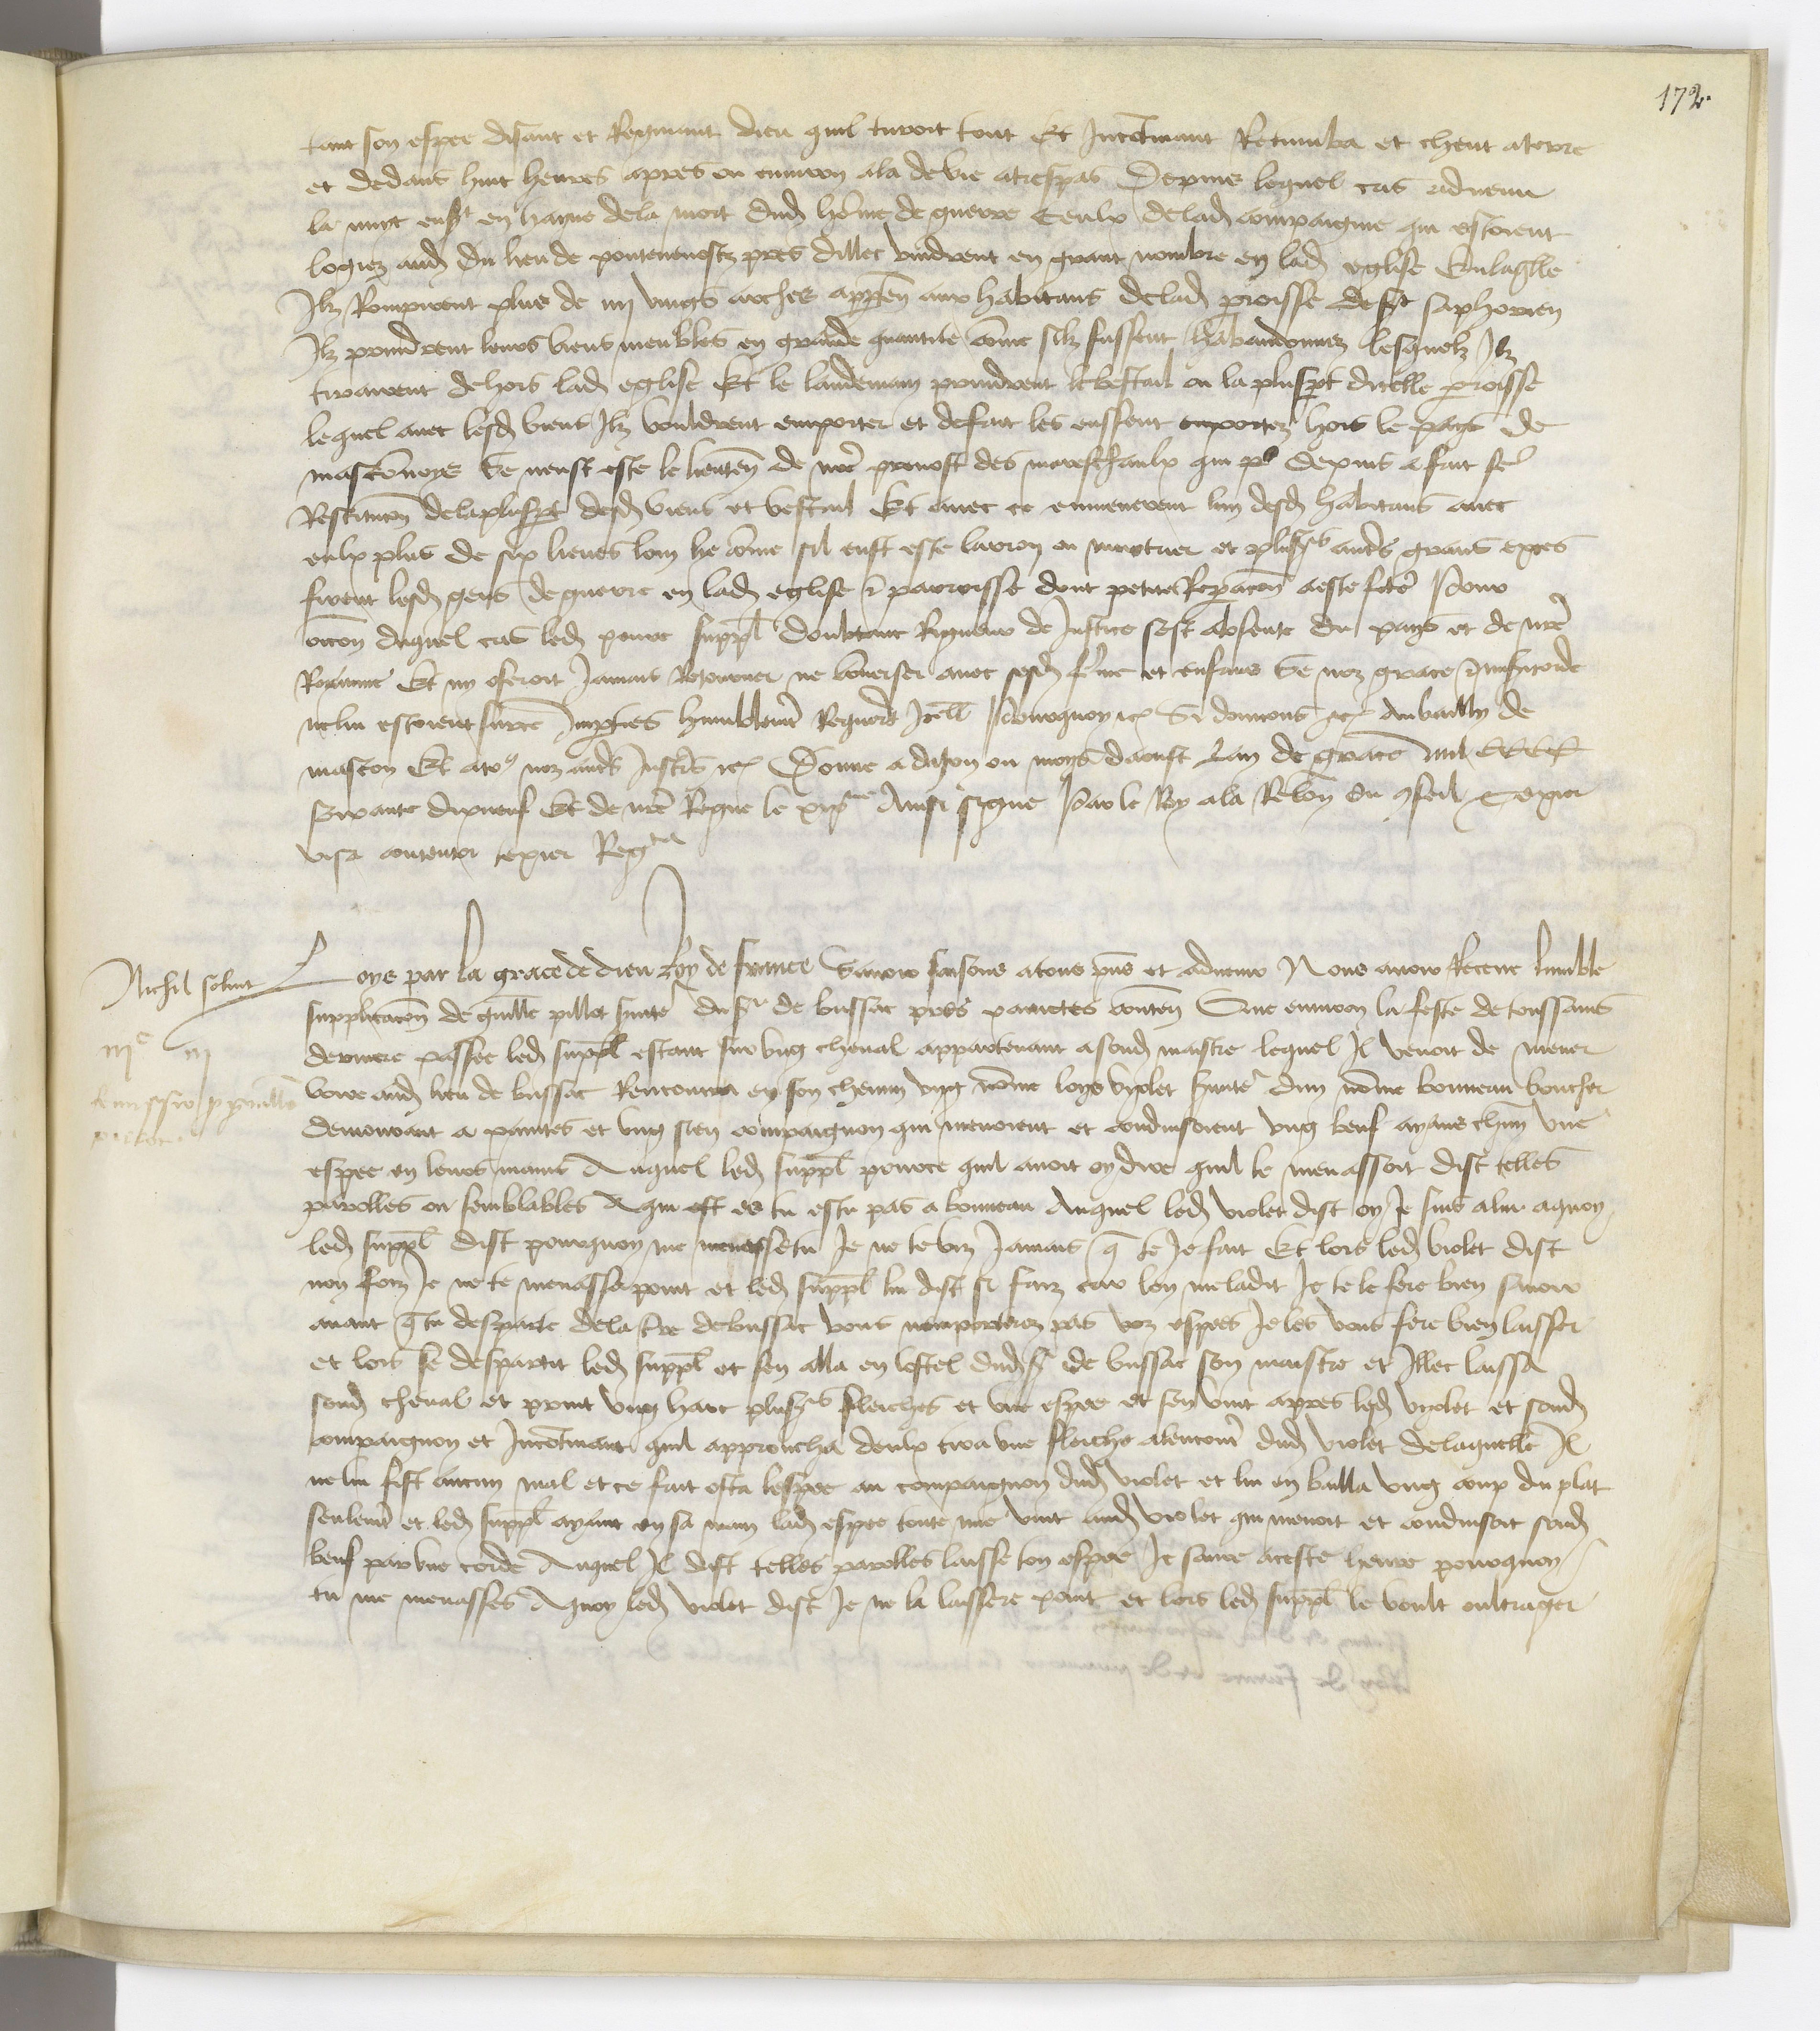 172.
tant son espee disant et Regniant dieu quil turoit tout Et Incontinant Retumba et cheut aterre
et dedans huit heures apres ou environ ala devie atrespas Depuis lequel cas advenu
la nuyt ensvt en hayne dela mort dud homme de guerre Ceulx delad compaignie qui estoient
logiez aud du lieu de pres dillec vindrent en grant nombre en lad eglise En laqlle
Ilz Rompirent plus de iiij vings arches apparten aux habitans delad parroisse de st saphorien
Ilz prindrent leurs biens meubles en grande quantite comme silz fussent habandonnez lesquelz Ilz
tirarent dehors lad eglise Et le landemain prindrent le bestail ou la pluspt dicelle parroisse
lequel avec lesd biens Ilz vouldrent emporter et defait les eussent emportez hors le pays de
masconnoys Se neust este le lieuten de nre prevost des mareschaulx qui depuis a fait fe
Restitucon dela pluspt desd biens et bestail Et avec ce emmenerent lun desd habitans avec
eulx plus de six lieues loin lie comme sil eust este larron ou murtrier et plusrs autrs grans exces
firent lesd gens de guerre en lad eglise & parroisse dont petite Reparacon a este fcte Pour
occon duquel cas led povre suppl doubtant Rigueur de Justice sest absente du pays et de nre
Royaume Et ny oseroit Jamais Retourner ne converser avec sesd feme et enfans Se noz grace & misericorde
ne lui estoient sur ce Imparties humblemt Requert Icell Pourquoy etc Si donnons etc au bailly de
mascon Et a to9 noz autrs Justicrs etc Donne a dijon ou moys daoust Lan de grace mil CCCC
soixante dixneuf Et de nre Regne le xixme Ainsi signe Par le Roy ala Relon du conseil Texier
visa contentor texier Regta
Nichil solvit
Loys par la grace de dieu Roy de france Savoir faisons atous pns et advenir Nous avoir Receue lumble
iijc iij
supplicacon de guille pillot svite du sr de bussac pres xainctes conten Que environ la feste de toussains
derniere passee led suppl estant sur ung cheval appartenant a sond maistre lequel Il venoit de mener
Remissio p guillo
pillot
boire aud lieu de bussac Rencontra en son chemin ung nomme loys vyolet svite dun nomme bonneau boucher
demourant a xaintes et ung sien compaignon qui menoient et conduisoient ung beuf ayans chun une
espee en leurs mains Auquel led suppl pource quil avoit oy dire quil le menassoit dist telles
parolles ou semblables A qui est es tu estu pas a bonneau Auquel led violet dist oy Je suis a lui aquoy
led suppl dist pourquoy me menasse tu Je ne te viz Jamais q te Je fait Et lors led violet dist
non foiz Je ne te menasse point et led suppl lui dist si faiz car lon me la dit Je te le fere bien savoir
avant q tu desparte dela tre de bussac vous nemporterez pas voz espees Je les vous fere bien laisser
et lors se despartit led suppl et sen alla en lostel dud sr de bussac son maistre et Illec laissa
sond cheval et print ung harc plusrs fleiches et une espee et sen vint apres led vyolet et sond
compaignon et Incontinant quil approucha deulx tira une fleiche alencontr dud violet delaquelle Il
ne lui fist aucun mal et ce fait osta lespee au compaignon dud violet et lui en bailla ung coup du plat
seulemt et led suppl ayant en sa main lad espee toute nue vint aud violet qui menoit et conduisoit sond
beuf par une corde Auquel Il dist telles parolles laisse ton espee Je saure aceste heure pourquoy
tu me menasses A quoy led violet dist Je ne la laissere point et lors led suppl le voult oultrager